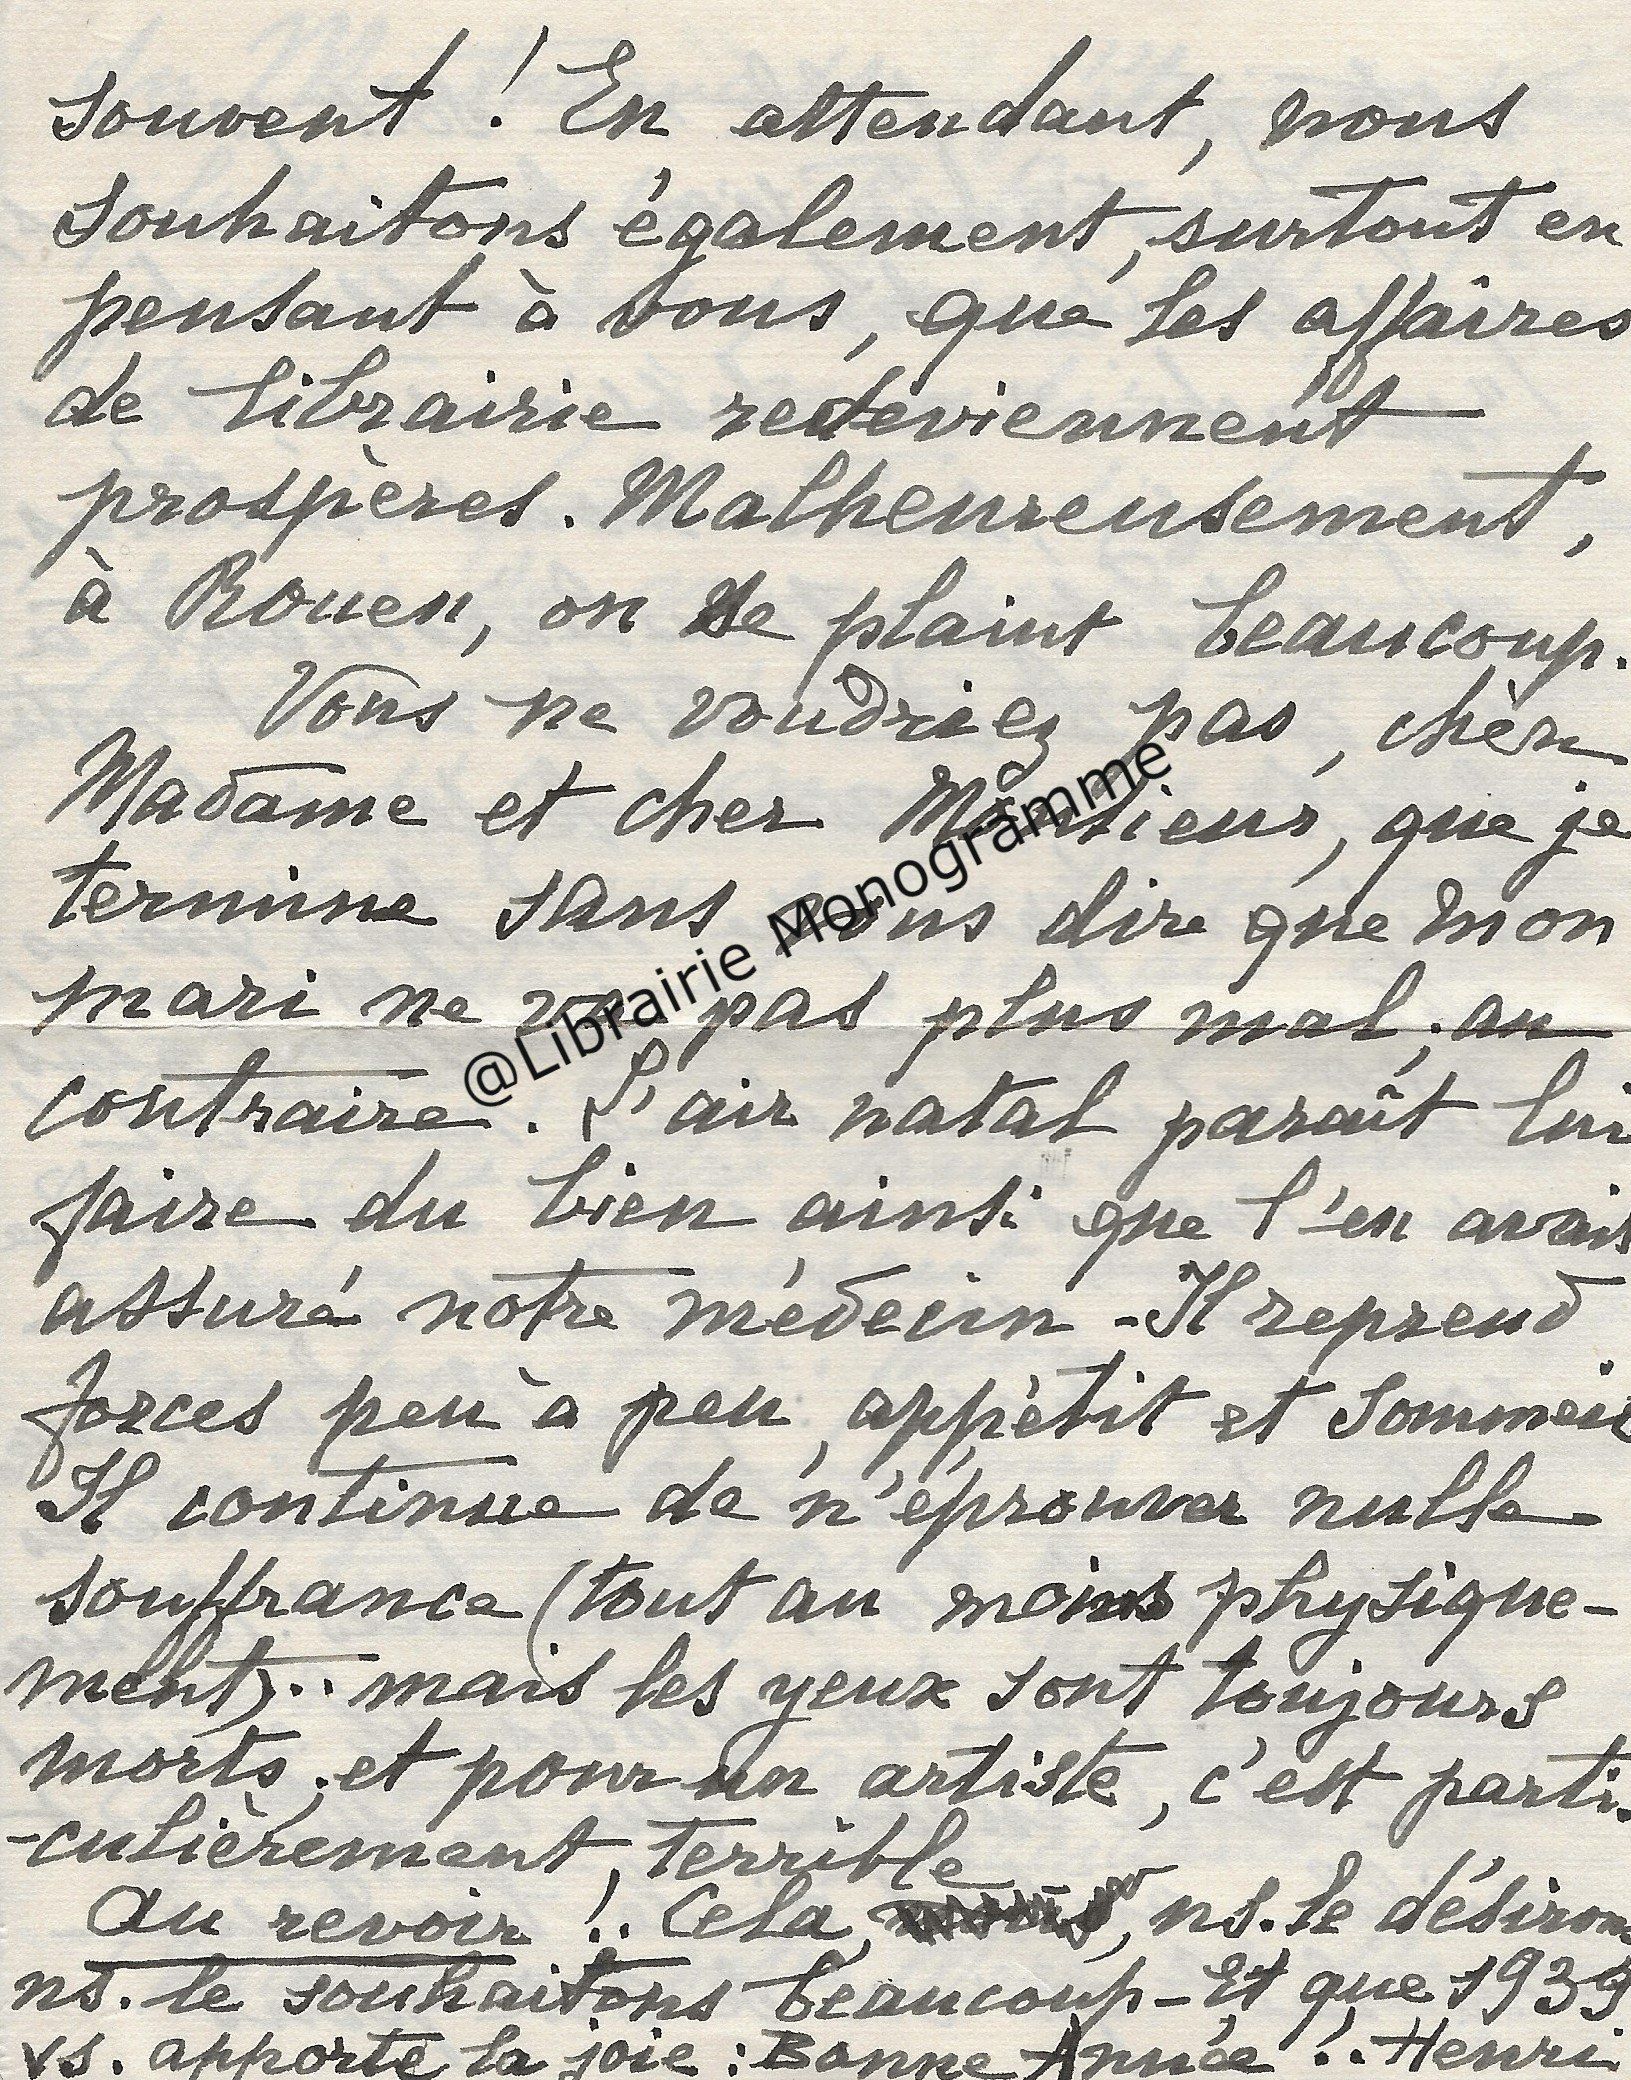 souvent ! En attendant, nous
souhaitons également, surtout en
pensant à vous, que les affaires
de librairie redeviennent
prospères. Malheureusement,
à Rouen, on se plaint beaucoup.
Vous ne voudriez pas, chère
Madame et cher Monsieur, que je
termine sans vous dire que mon
mari ne va pas plus mal ; au
contraire. L'air natal paraît lui
faire du bien ainsi que l'en avait
assuré notre médecin - Il reprend
forces peu à peu, appétit et sommeil
Il continue de n'éprouver nulle
souffrance (tout au moins physique-
ment).. mais les yeux sont toujours
morts ; et pour un artiste, c'est parti-
-culièrement, terrible
Au revoir !.. Cela, ns. le désirons
ns. le souhaitons beaucoup - Et que 1939
vs. apporte la joie : Bonne Année !.. Henri
@Librairie Monogramme